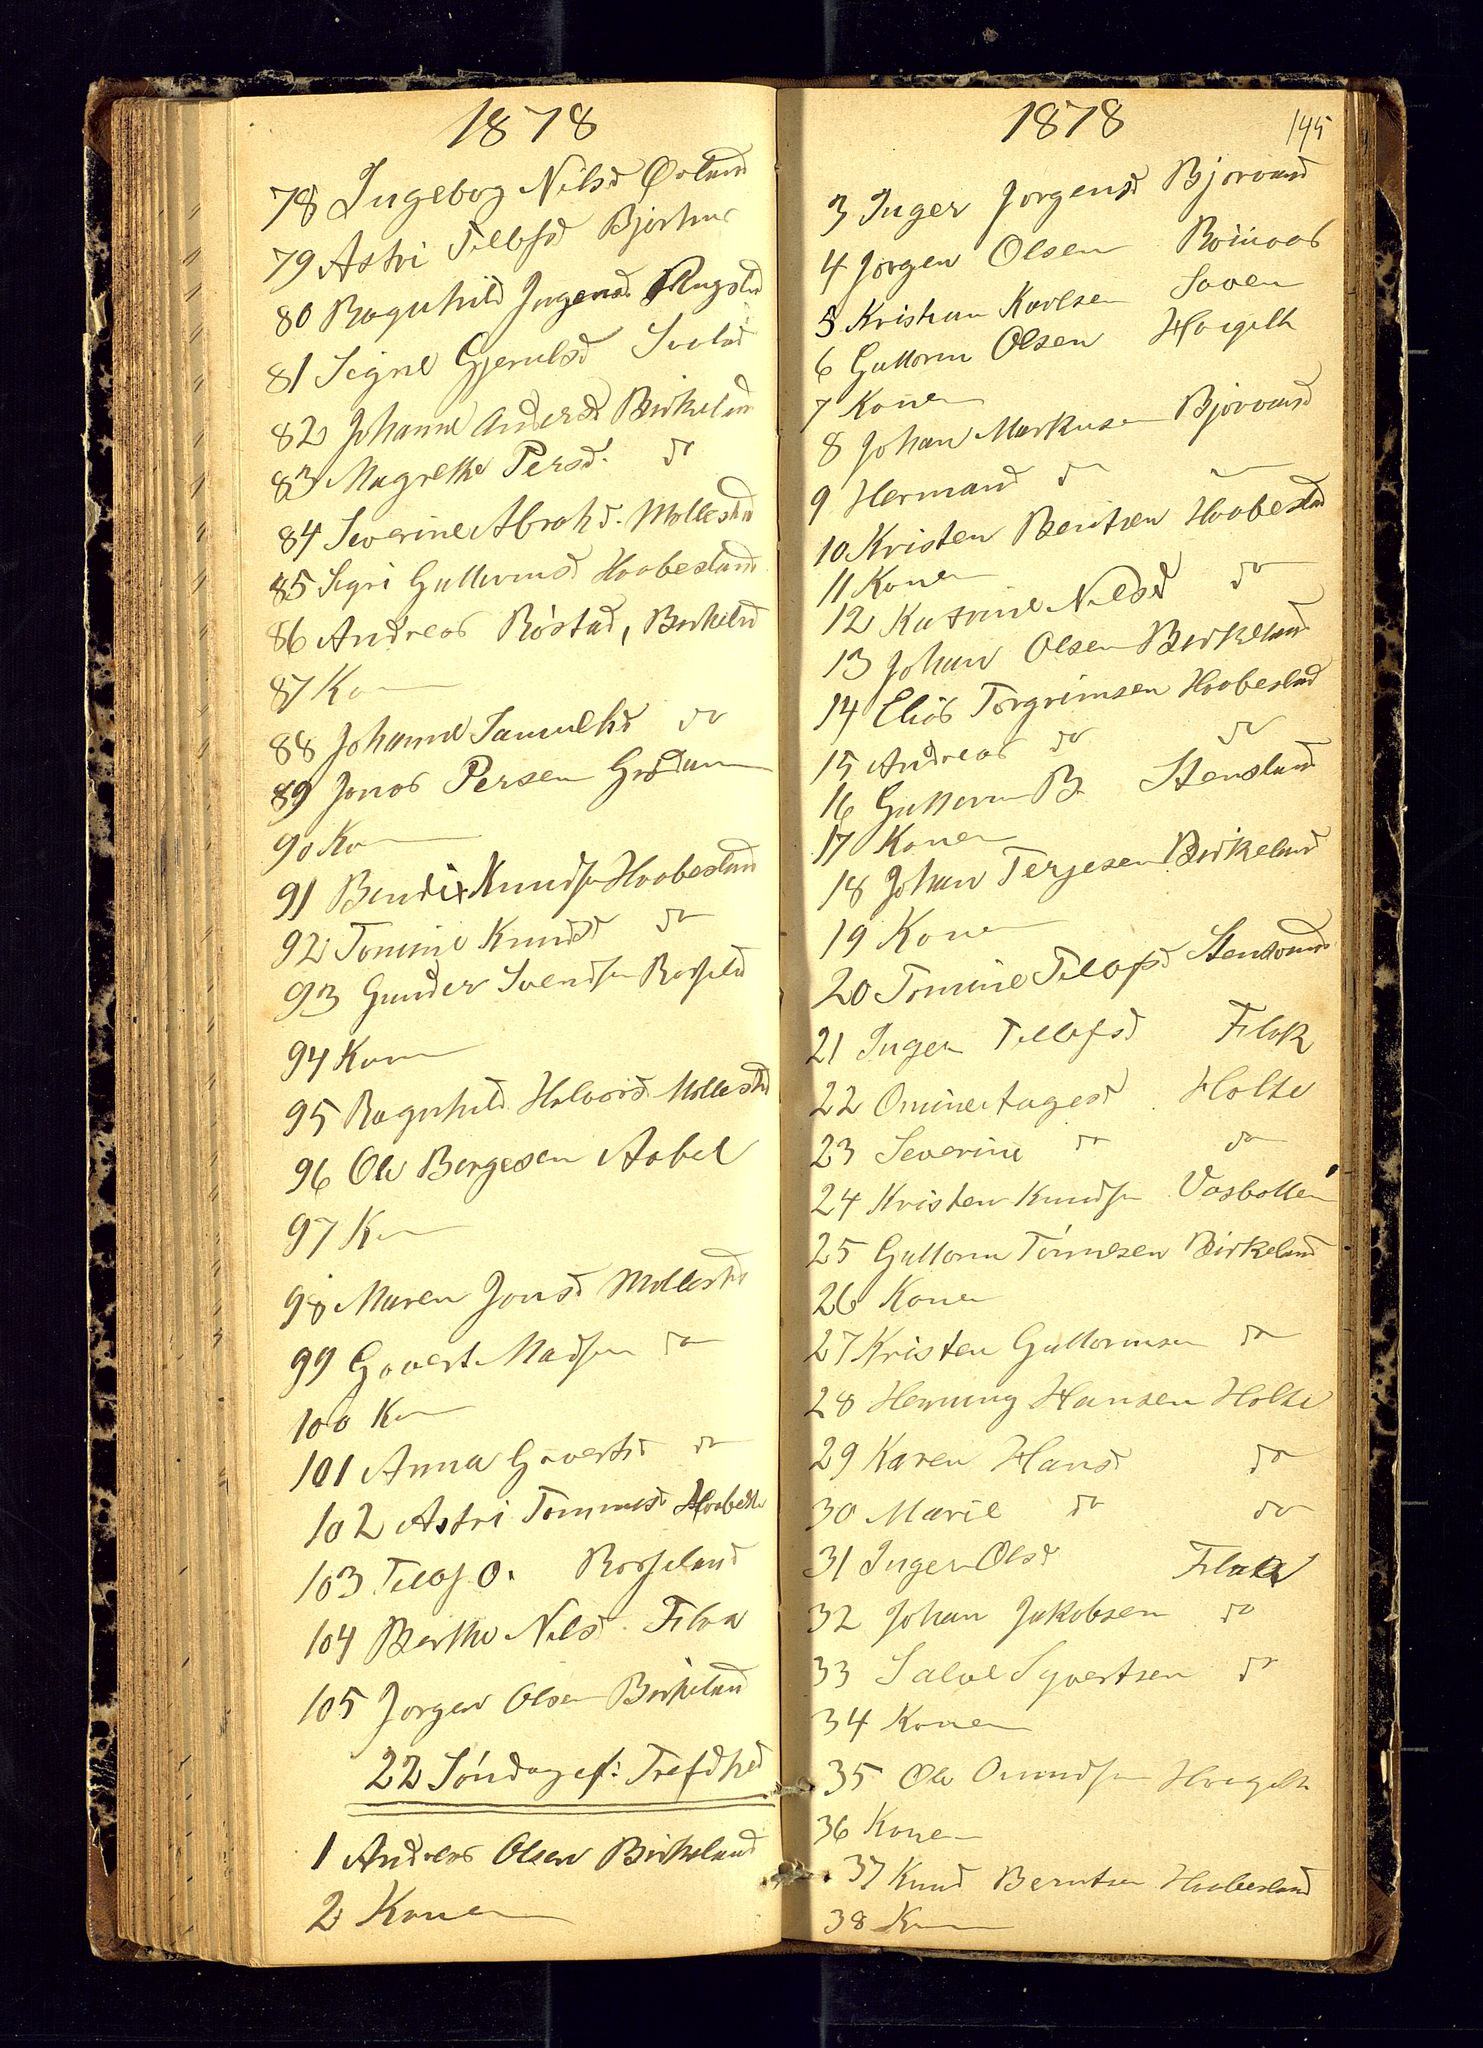 1878
78 Ingebog Nilsd
79 Astri Tellefsd
80 Ragnhild Jngensd
81 Signe Gjeruldsd
82 Johanne Andersd Birkeland
83 Magrethe Persd. do
84 Severine Abrahd. Mollestad
85 Sigri Guttormsd Haabesland
86 Andreas Röstad, Birkelnd
87 Kon
88 Johanne Samuelsd do
89 Jonas Persen
90 Kon
91 Bendix Knudsen Haabesland
92 Tomine Knudsd do
93 Gunder Svendsen
94 Kon
95 Ragnhild Halvorsd. Mollestd
96 Ole Bergesen Aabel
97 Kon
98 Maren Jonsd Mollestad
99 Govert Madsen do
100 Kon
101 Anna Govertsd do
102 Astri Tommesd
103 Tellef O.
104 Berthe Nilsd. Flaa
105 Jorgen Olsen Birkeland
22 Söndag ef: Trefdhed
1 Andreas Olsen Birkeland
2 Konen
1878
145
3 Inger Jorgensd Bjorvand
4 Jorgen Olsen
5 Kristian Karlsen
6 Guttorm Olsen
7 Konen
8 Johan Markusen Bjorvand
9 Hermand do
10 Kristen Bentsen Haabeslad
11 Konen
12 Katrine Nilsd do
13 Johan Olsen Birkeland
14 Elias Torgrimsen Haabeslad
15 Andreas do do
16 Guttorm B. Stensland
17 Konen
18 Johan Terjesen Birkeland
19 Konen
20 Tomine Tellefsd
21 Inger Tellefsd
22 Omine Aagesd Holte
23 Severine do do
24 Kristen Knudsen Vasbotten
25 Guttorm Tönnesen Birkeland
26 Konen
27 Kristen Guttormsen do
28 Henning Hansen Holte
29 Karen Hansd do
30 Marie do do
31 Inger Olsd
32 Johan Jakobsen do
33 Salve Syvertsen do
34 Konen
35 Ole Omundsen
36 Konen
37 Knud Berntsen Haabesland
38 Kon